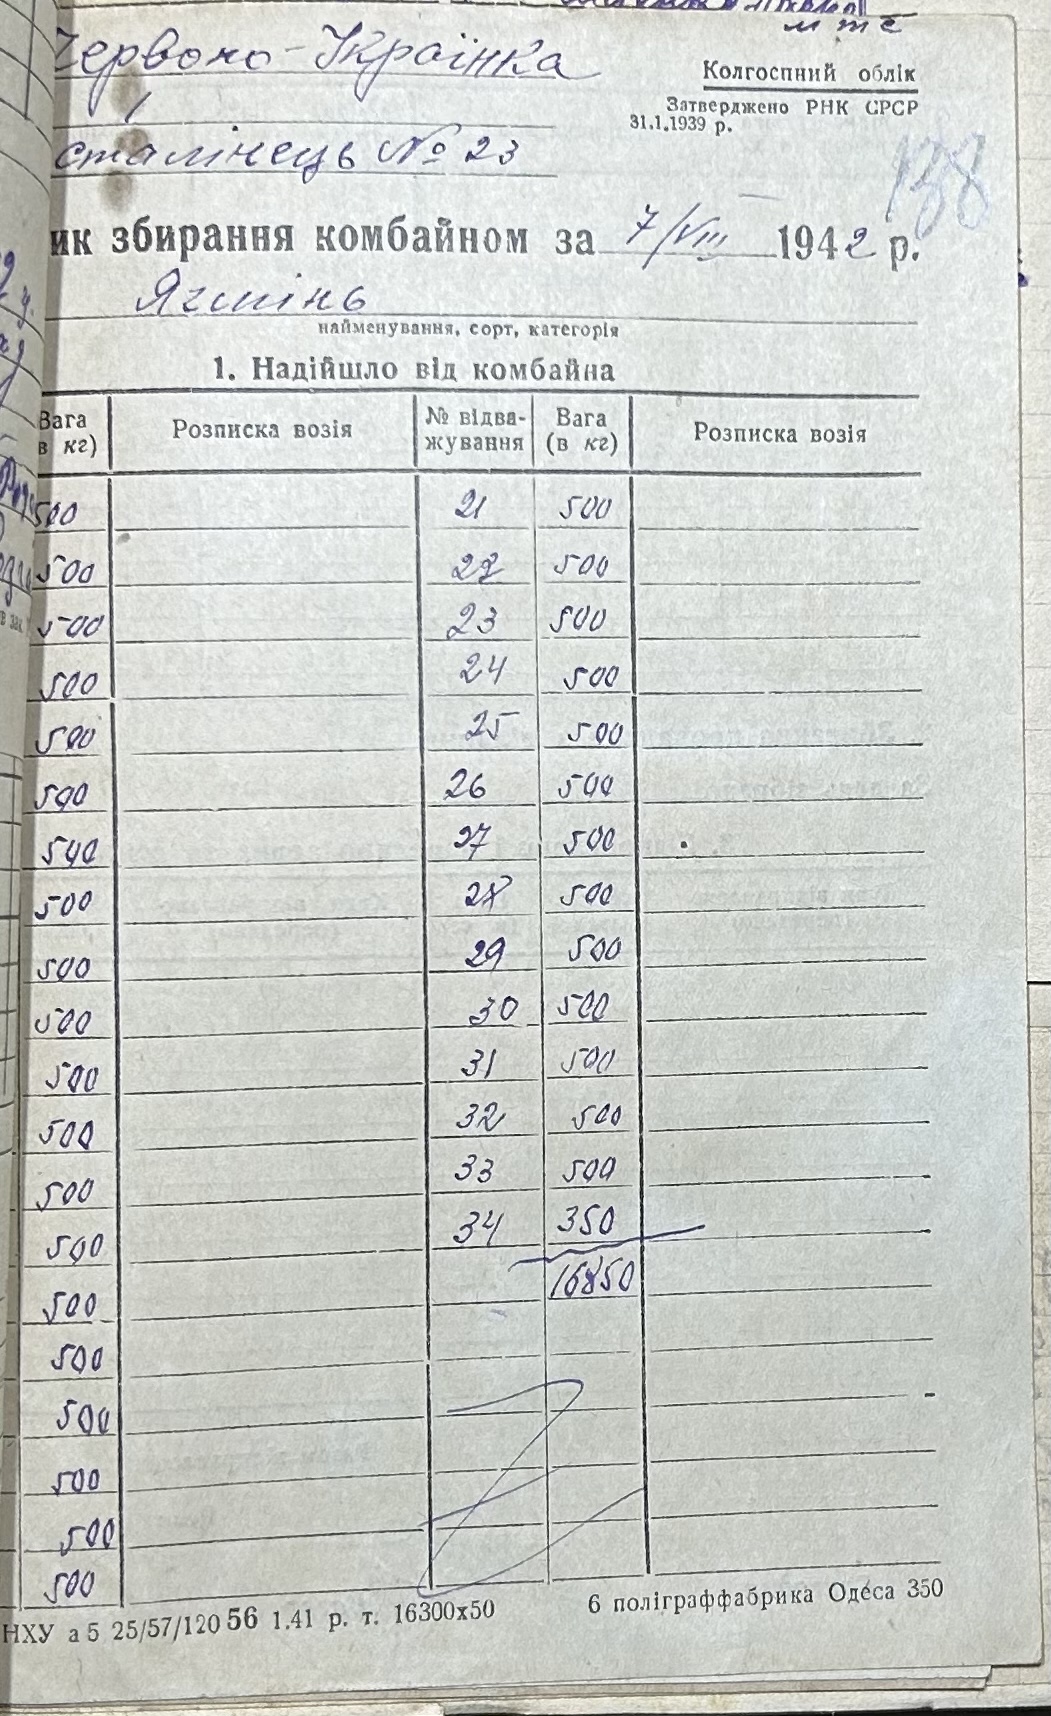 мте
Червоно-Українка
Колгоспний облік
1
Затверджено РНК СРСР
31.1.1939 р.
сталінець № 23
138
ик збирання комбайном за 7/VIII 1942 р.
Ячмінь
найменування, сорт, категорія
1. Надійшло від комбайна
Вага в кг) Розписка возія № відва-жування Вага (в кг) Розписка возія
500 21 500
500 22 500
500 23 500
500 24 500
500 25 500
500 26 500
500 27 500
500 28 500
500 29 500
500 30 500
500 31 500
500 32 500
500 33 500
500 34 350
500 16850
500
500
500
500
500
НХУ а 5 25/57/120 56 1.41 р. т. 16300х50 6 поліграффабрика Одеса 350